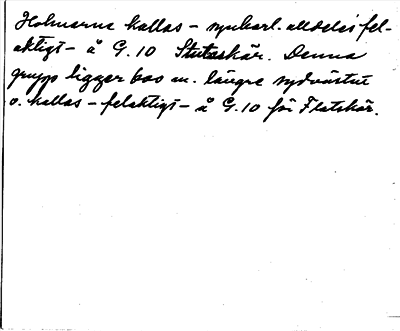 Holmarna kallas – synbarl. alldeles fel-
aktigt – å G. 10 Stutaskär. Denna
grupp ligger 600 m. längre sydvästut
o. kallas – felaktigt – å G. 10 för Flatskär.